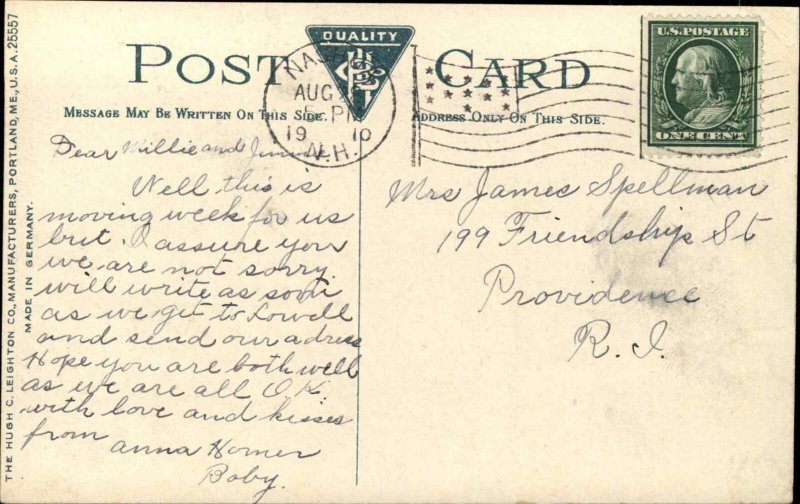 POST CARD
QUALITY
MESSAGE MAY BE WRITTEN ON THIS SIDE.
ADDRESS ONLY ON THIS SIDE.
NAS
AUG
5 PM
19 10
N.H.
U.S. POSTAGE
ONE CENT
THE HUGH C. LEIGHTON CO., MANUFACTURERS, PORTLAND, ME., U.S.A. 25557
MADE IN GERMANY.
Dear Millie and Jimmie
Well this is
moving week for us
but I assure you
we are not sorry
will write as soon
as we get to Lowell
and send our adress
Hope you are both well
as we are all O.K.
with love and kisses
from
Anna Homer
Baby.
Mrs James Spellman
199 Friendship St
Providence
R. I.